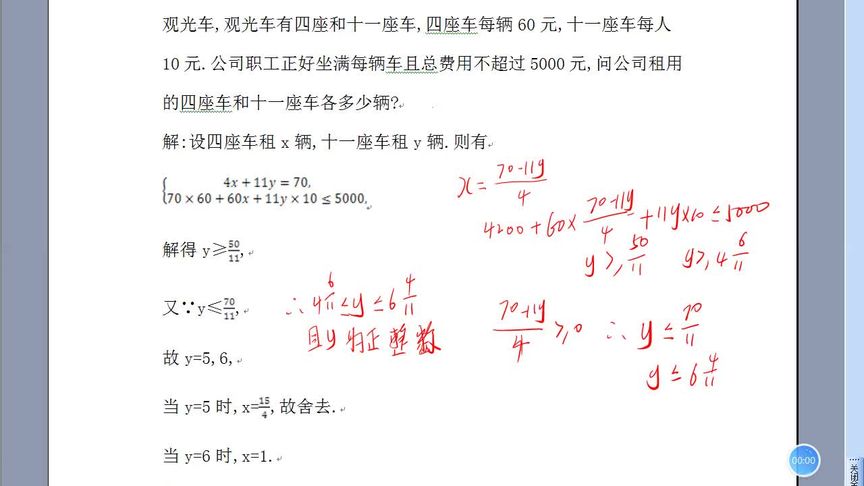 观光车,观光车有四座和十一座车,四座车每辆 60 元,十一座车每人
10 元.公司职工正好坐满每辆车且总费用不超过 5000 元,问公司租用
的四座车和十一座车各多少辆?
解:设四座车租 x 辆,十一座车租 y 辆.则有
{4x+11y=70,
70×60+60x+11y×10≤5000,
x=(70-11y)/4
4200+60×(70-11y)/4+11y×10≤5000
解得 y≥50/11,
y≥50/11 y≥4 6/11
又∵y≤70/11,
∴4 6/11≤y≤6 4/11
(70-11y)/4≥0 ∴y≤70/11
且y为正整数
y≤6 4/11
故 y=5,6,
当 y=5 时,x=15/4,故舍去.
当 y=6 时,x=1.
00:00
关闭